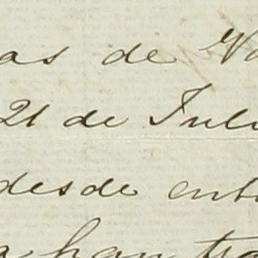 as de
21 de Juli
desde ent
han tra